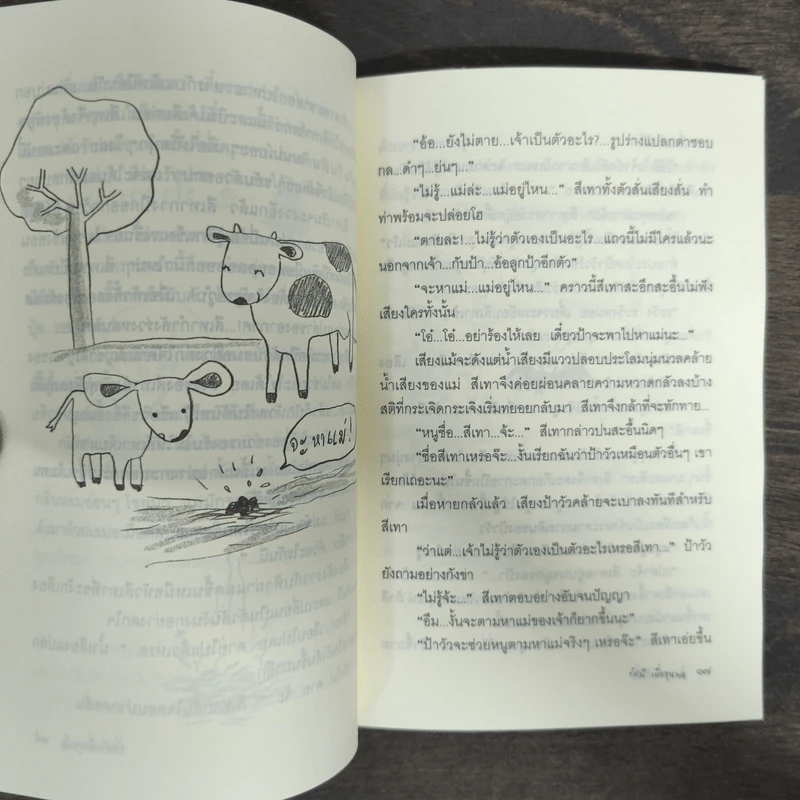 จะหาแม่!
"อ้อ...ยังไม่ตาย...เจ้าเป็นตัวอะไร?...รูปร่างแปลกตาชอบ
กล...ดำๆ...ย่นๆ..."
"ไม่รู้...แม่ล่ะ...แม่อยู่ไหน..." สีเทาทั้งตัวสั่นเสียงสั่น ทำ
ท่าพร้อมจะปล่อยโฮ
"ตายละ!...ไม่รู้ว่าตัวเองเป็นอะไร...แถวนี้ไม่มีใครแล้วนะ
นอกจากเจ้า...กับป้า...อ้อลูกป้าอีกตัว"
"จะหาแม่...แม่อยู่ไหน..." คราวนี้สีเทาสะอึกสะอื้นไม่ฟัง
เสียงใครทั้งนั้น
"โอ๋...โอ๋...อย่าร้องไห้เลย เดี๋ยวป้าจะพาไปหาแม่นะ..."
เสียงแม้จะดังแต่น้ำเสียงมีแววปลอบประโลมนุ่มนวลคล้าย
น้ำเสียงของแม่ สีเทาจึงค่อยผ่อนคลายความหวาดกลัวลงบ้าง
สติที่กระเจิดกระเจิงเริ่มทยอยกลับมา สีเทาจึงกล้าที่จะทักทาย...
"หนูชื่อ...สีเทา...จ้ะ..." สีเทากล่าวปนสะอื้นนิดๆ
"ชื่อสีเทาเหรอจ๊ะ...งั้นเรียกฉันว่าป้าวัวเหมือนตัวอื่นๆ เขา
เรียกเถอะนะ"
เมื่อหายกลัวแล้ว เสียงป้าวัวคล้ายจะเบาลงทันทีสำหรับ
สีเทา
"ว่าแต่...เจ้าไม่รู้ว่าตัวเองเป็นตัวอะไรเหรอสีเทา..." ป้าวัว
ยังถามอย่างกังขา
"ไม่รู้จ้ะ..." สีเทาตอบอย่างอับจนปัญญา
"อืม...งั้นจะตามหาแม่ของเจ้าก็ยากขึ้นนะ"
"ป้าวัวจะช่วยหนูตามหาแม่จริงๆ เหรอจ๊ะ" สีเทาเอ่ยขึ้น